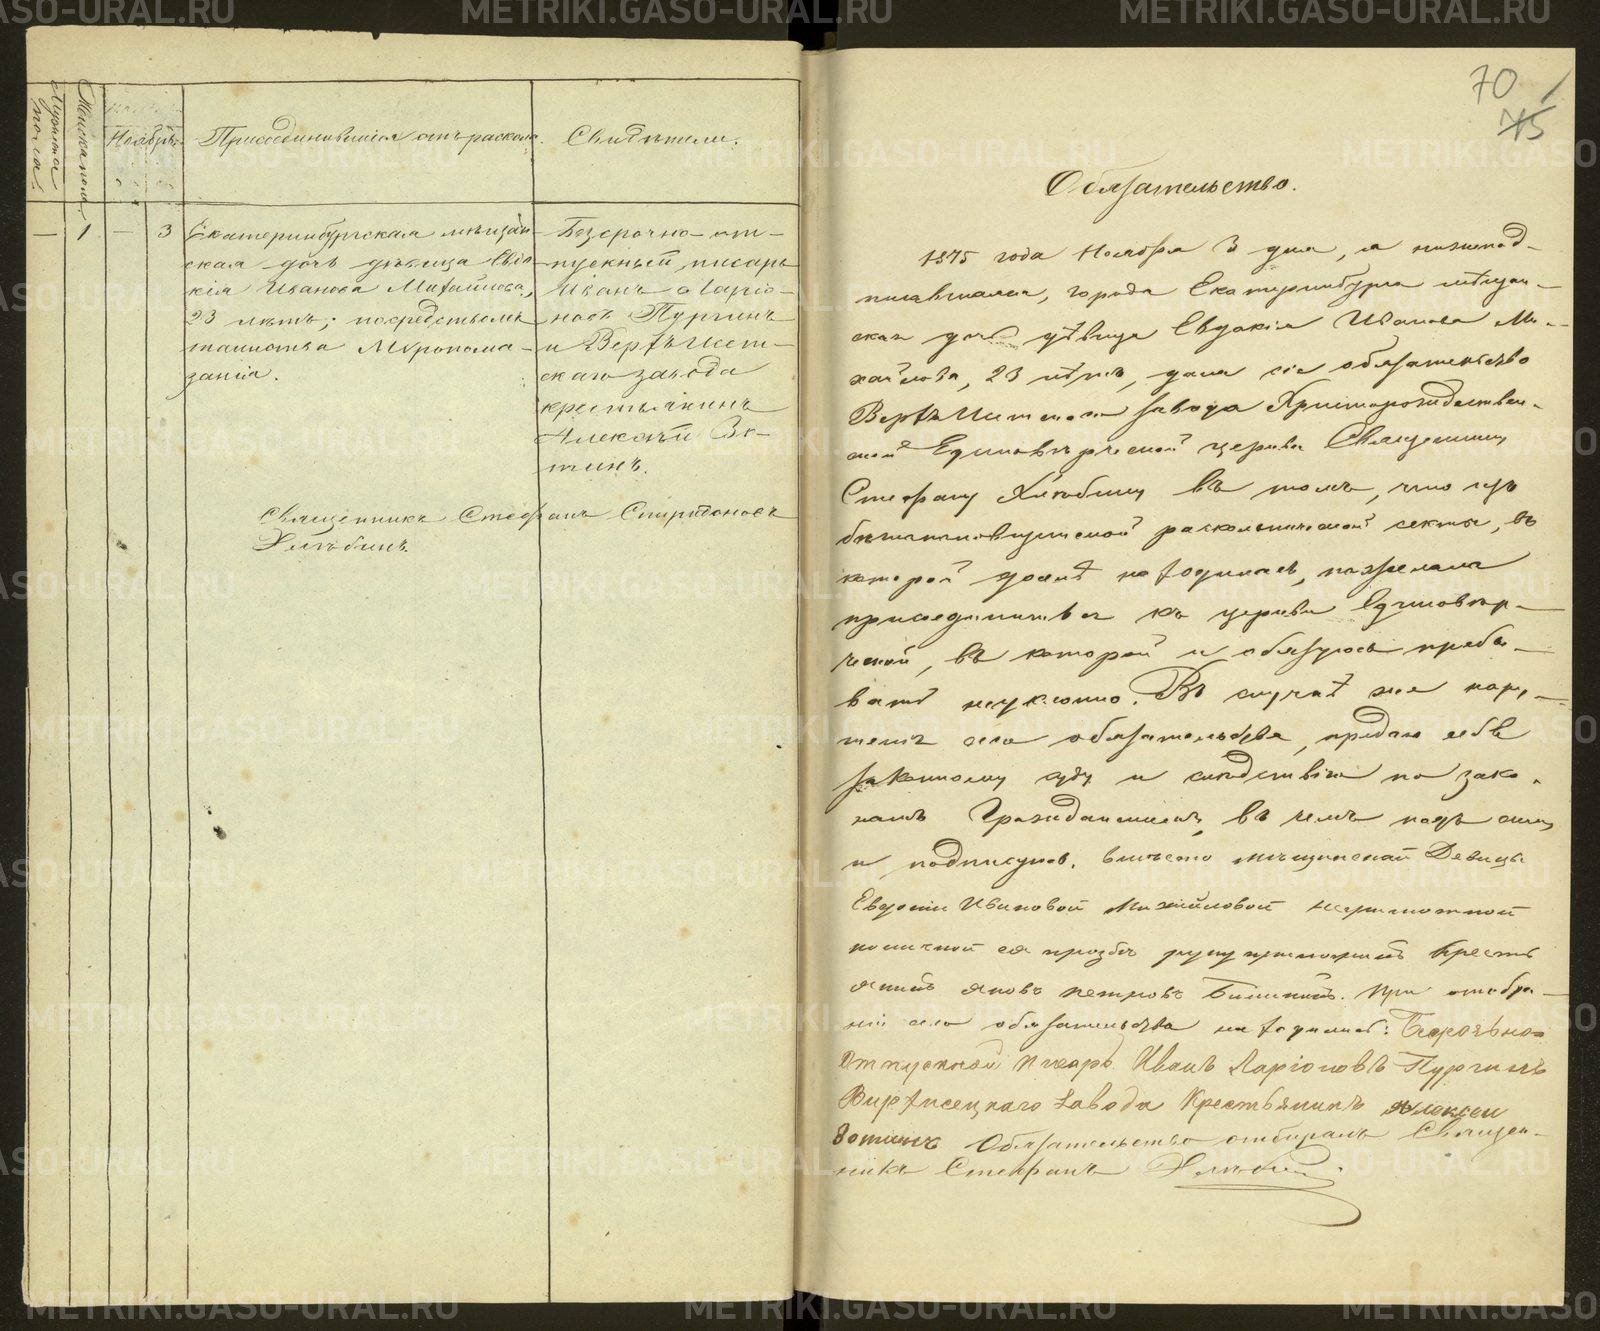 Мужска пола.
Женска пола.
Ноябрь.
Присоединившіяся отъ раскола.
Свидѣтели.
— 1 — 3
Екатеринбургская мѣщан-
ская дочь дѣвица Евдо-
кія Иванова Михайлова,
23 лѣтъ; посредствомъ
таинства Мѵропома-
занія.
Безсрочно-от-
пускный писарь
Иванъ Ларіо-
новъ Пургинъ
и Верхъ-Исет-
скаго завода
крестьянинъ
Алексѣй Зо-
тинъ.
Священникъ Стефанъ Спиридоновъ
Хлѣбинъ.
70
75
Обязательство.
1875 года Ноября 3 дня, я нижепод-
писавшаяся, города Екатеринбурга мѣщан-
ская дочь дѣвица Евдокія Иванова Ми-
хайлова, 23 лѣтъ, дала сіе обязательство
Верхъ Исетскаго завода Христорождествен-
ской Единовѣрческой церкви Священнику
Стефану Хлѣбину въ томъ, что изъ
раскольнической секты, въ
которой донынѣ находилась, пожелала
присоединиться къ церкви Единовѣр-
ческой, въ которой и обязуюсь пребы-
вать неуклонно. Въ случаѣ же нару-
шенія сего обязательства, предаю себя
законному суду и слѣдствію по зако-
намъ Гражданскимъ, въ чемъ подъ симъ
и подписуюсь. вмѣсто мѣщанской Девицы
Евдокіи Ивановой Михайловой неграмотной
по личной ея прозбѣ руку приложилъ Кресть
янинъ Яковъ Петровъ При отобра-
ніи сего обязательства находились: Безрочьно
Отпускной писарь Иванъ Ларіоновъ Пургинъ
Верхисецкаго Завода Крестьянинъ Алексеи
Зотинъ Обязательство отбиралъ Священ-
никъ Стефанъ Хлѣбинъ.
METRIKI.GASO-URAL.RU